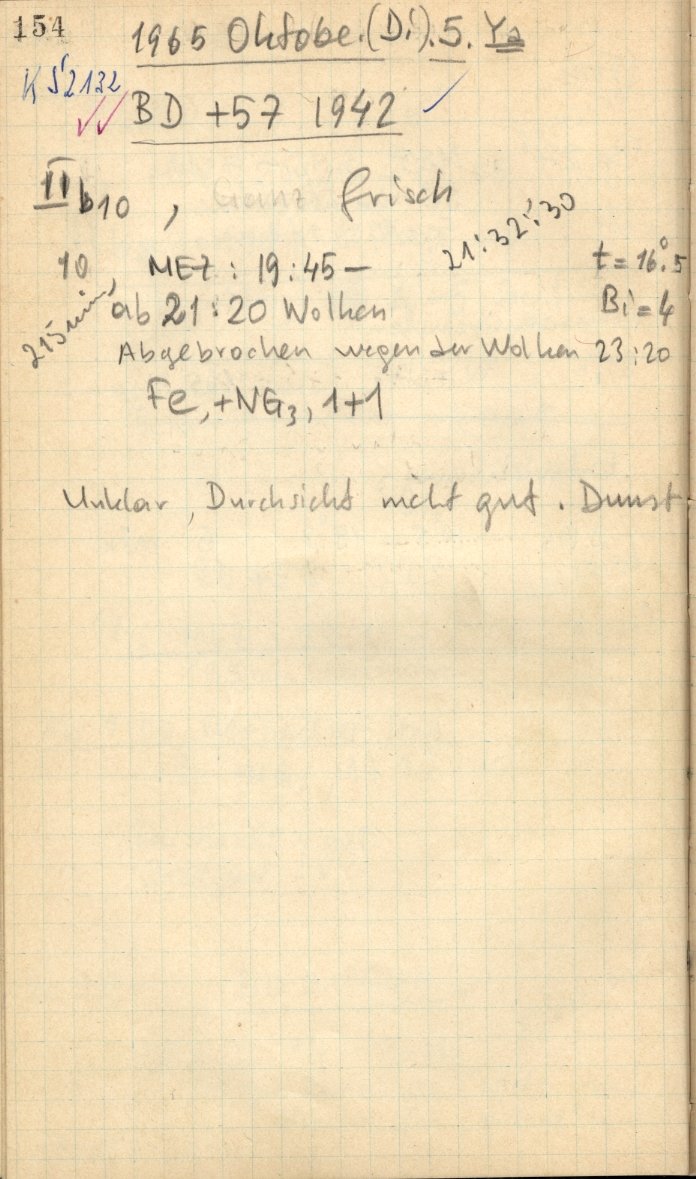 154
1965 Oktobe.(Di).5. Ya
KS2132
BD +57 1942
II b10 , Ganz frisch
21:32:30
10, MEZ : 19:45 — t = 16°.5
215 min, ab 21:20 Wolken Bi = 4
Abgebrochen wegen der Wolken 23:20
Fe, +NG3, 1+1
Unklar, Durchsicht nicht gut. Dunst.